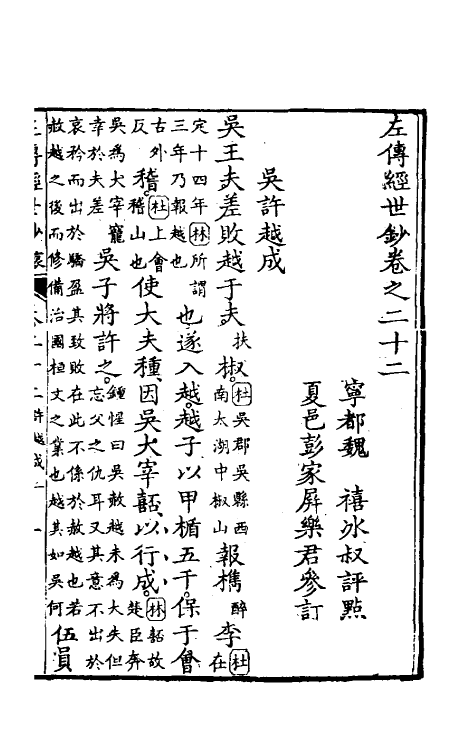 左傳經世鈔卷之二十二
寧都魏　禧冰叔評點
夏邑彭家屛樂君參訂
吳許越成
吳王夫差敗越于夫扶椒杜吳郡吳縣西南太湖中椒山報檇醉李杜在
定十四年林所謂三年乃報越也也遂入越越子以甲楯五千保于會
古外反稽杜上會稽山也使大夫種因吳大宰嚭以行成林嚭故楚臣奔
吳為大宰寵幸於夫差吳子將許之鍾惺曰吳赦越未為大失但忘父之仇耳又其意不出於
哀矜而出於驕盈其致敗在此不係於赦越也若赦越之後而修備治國桓文之業也越其如吳何伍員
左傳經世鈔
卷二十二許越成
一